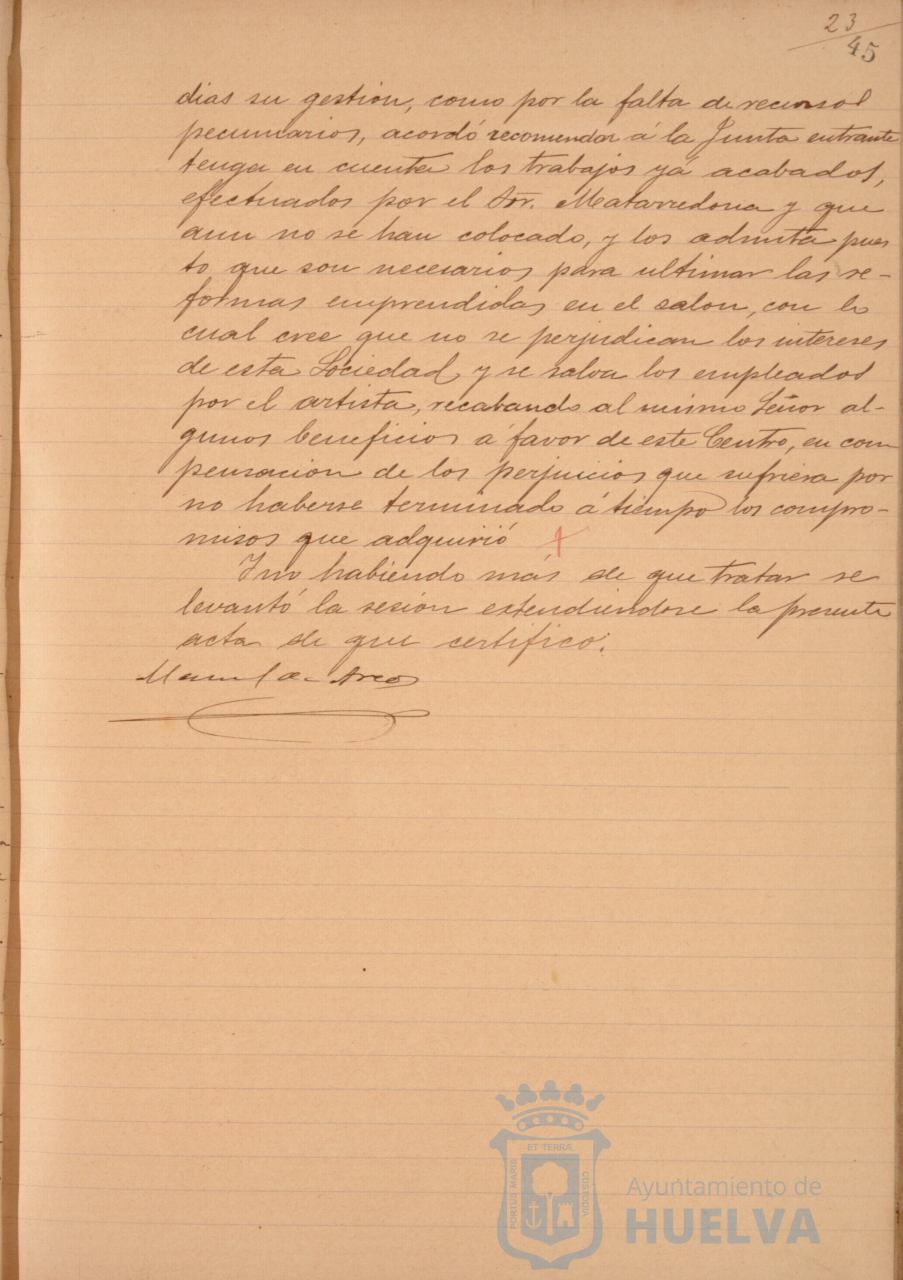 23
45
dias su gestión, como por la falta de recursos
pecuniarios, acordó recomendar á la Junta entrante
tenga en cuenta los trabajos yá acabados,
efectuados por el Sor. Matarredona y que
aun no se han colocado, y los admita pues
to que son necesarios para ultimar las re-
formas emprendidas en el salon, con lo
cual cree que no se perjudican los intereses
de esta Sociedad y se salva los empleados
por el artista, recabando al mismo Señor al-
gunos beneficios á favor de este Centro, en com
pensacion de los perjuicios que sufriera por
no haberse terminado á tiempo los compro-
misos que adquirió
Y no habiendo más de que tratar se
levantó la sesión extendiendose la presente
acta de que certifico.
Manuel de Arcos
ET TERRA
PORTUS MARIS
CUSTODIA
Ayuntamiento de
HUELVA